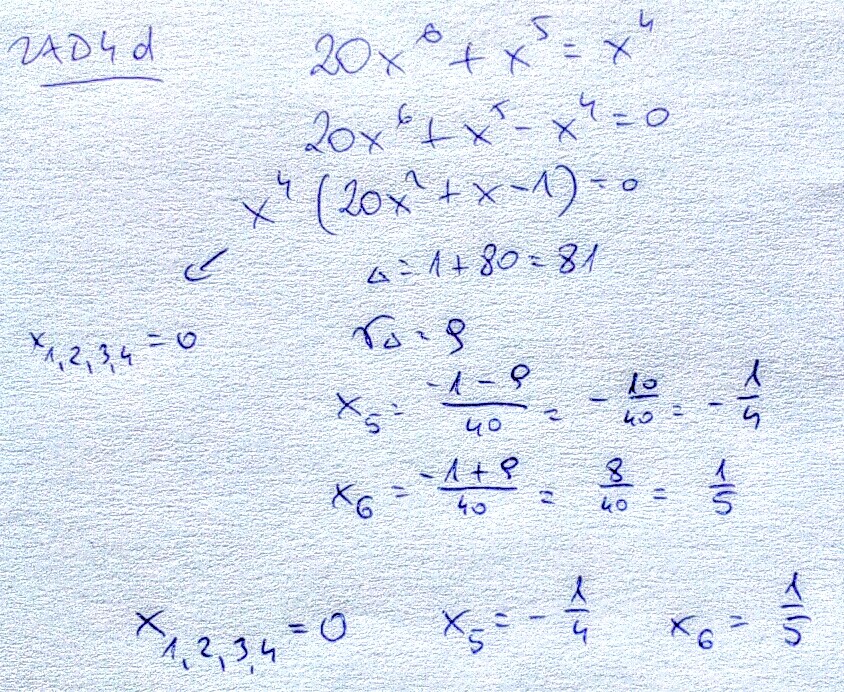 ZAD4d
20x⁶ + x⁵ = x⁴
20x⁶ + x⁵ - x⁴ = 0
x⁴ (20x² + x - 1) = 0
Δ = 1 + 80 = 81
x₁,₂,₃,₄ = 0
√Δ = 9
x₅ = (-1 - 9)/40 = -10/40 = -1/4
x₆ = (-1 + 9)/40 = 8/40 = 1/5
x₁,₂,₃,₄ = 0 x₅ = -1/4 x₆ = 1/5